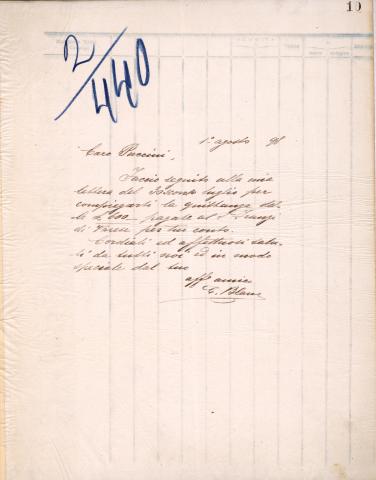 10
2/440
1° agosto 98
Caro Puccini,
Faccio seguito alla mia
lettera del 30 scorso luglio per
compiegarti la quittanza del-
le L. 600 pagate al S.
di Varese per tuo conto.
Cordiali ed affettuosi salu-
ti da tutti noi ed in modo
speciale dal tuo
aff. amico
C. Blanc